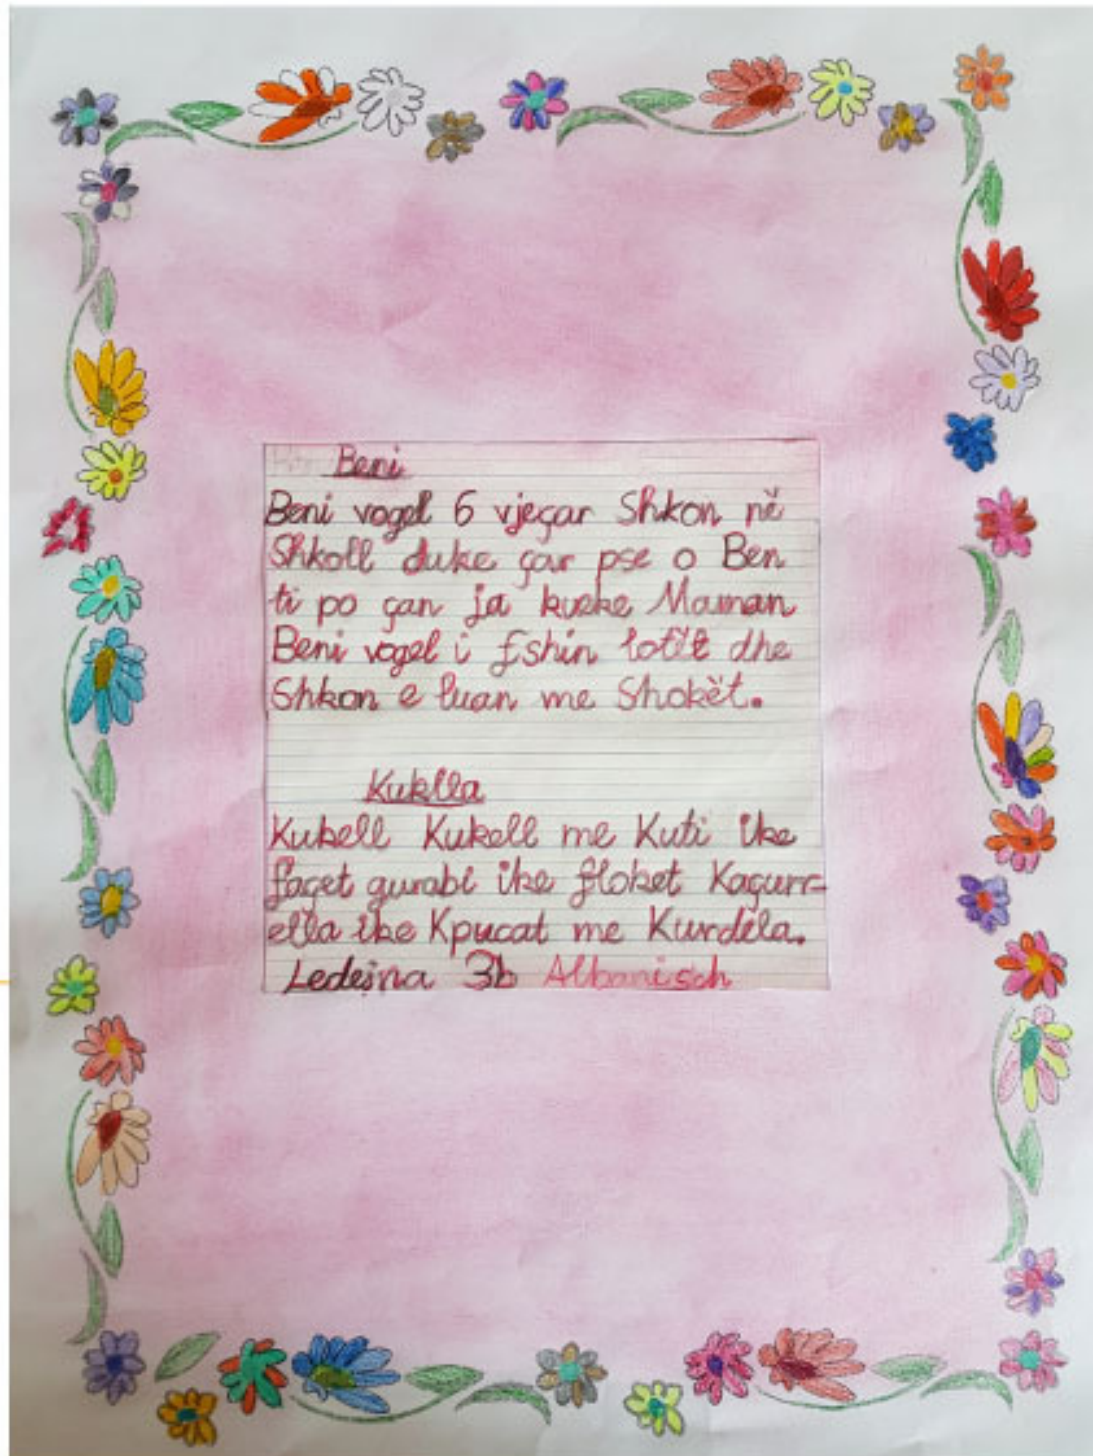 Beni
Beni vogel 6 vjeçar Shkon në
Shkoll duke çar pse o Ben
ti po çan ja kueke Maman
Beni vogel i fshin lotët dhe
Shkon e luan me Shokët.
Kuklla
Kukell Kukell me Kuti ike
façet gurabi ike floket Kaçurr-
ella ike Kpucat me Kurdela.
Ledejna 3b Albanisch